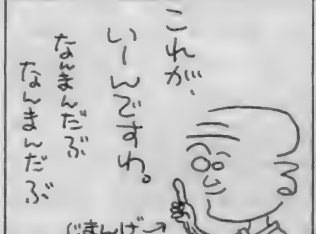 これが、
いーんですわ。
なんまんだぶ
なんまんだぶ
じまんげ→